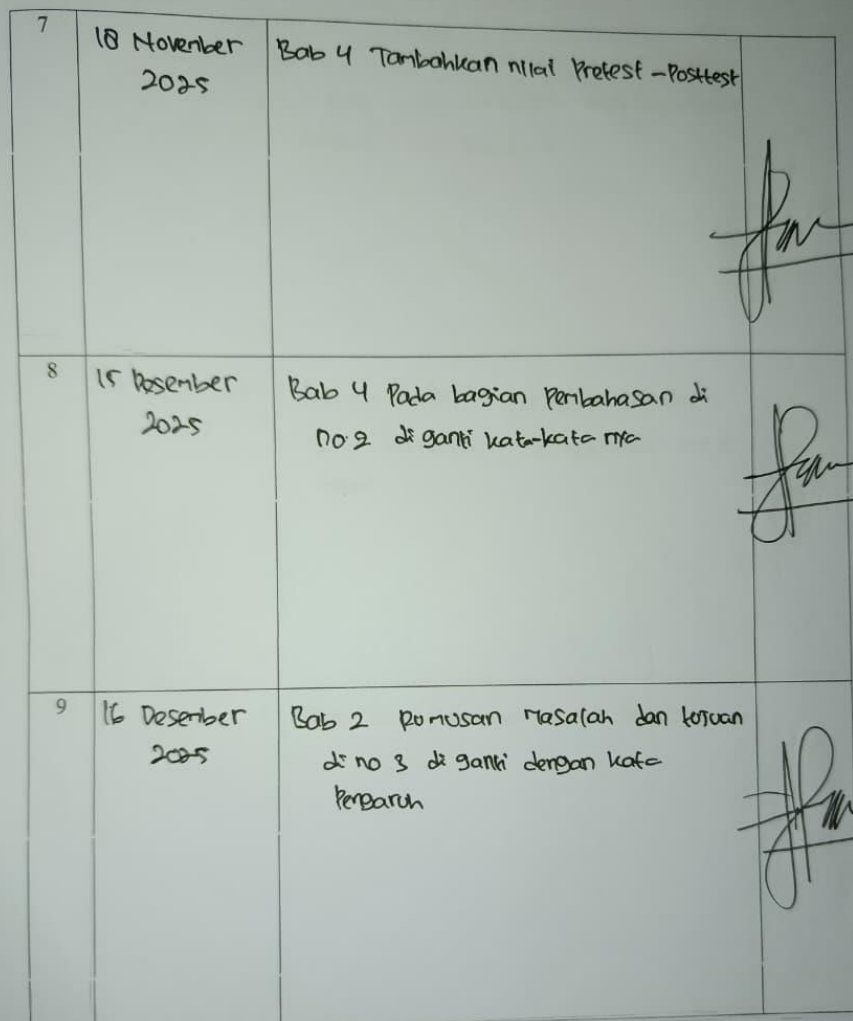 7
18 November
2025
Bab 4 Tambahkan nilai Pretest - Posttest
8
15 Desember
2025
Bab 4 Pada bagian Pembahasan di
no.2 di ganti kata-kata nya
9
16 Desember
2025
Bab 2 Rumusan masalah dan tujuan
di no 3 di ganti dengan kata
Pengaruh